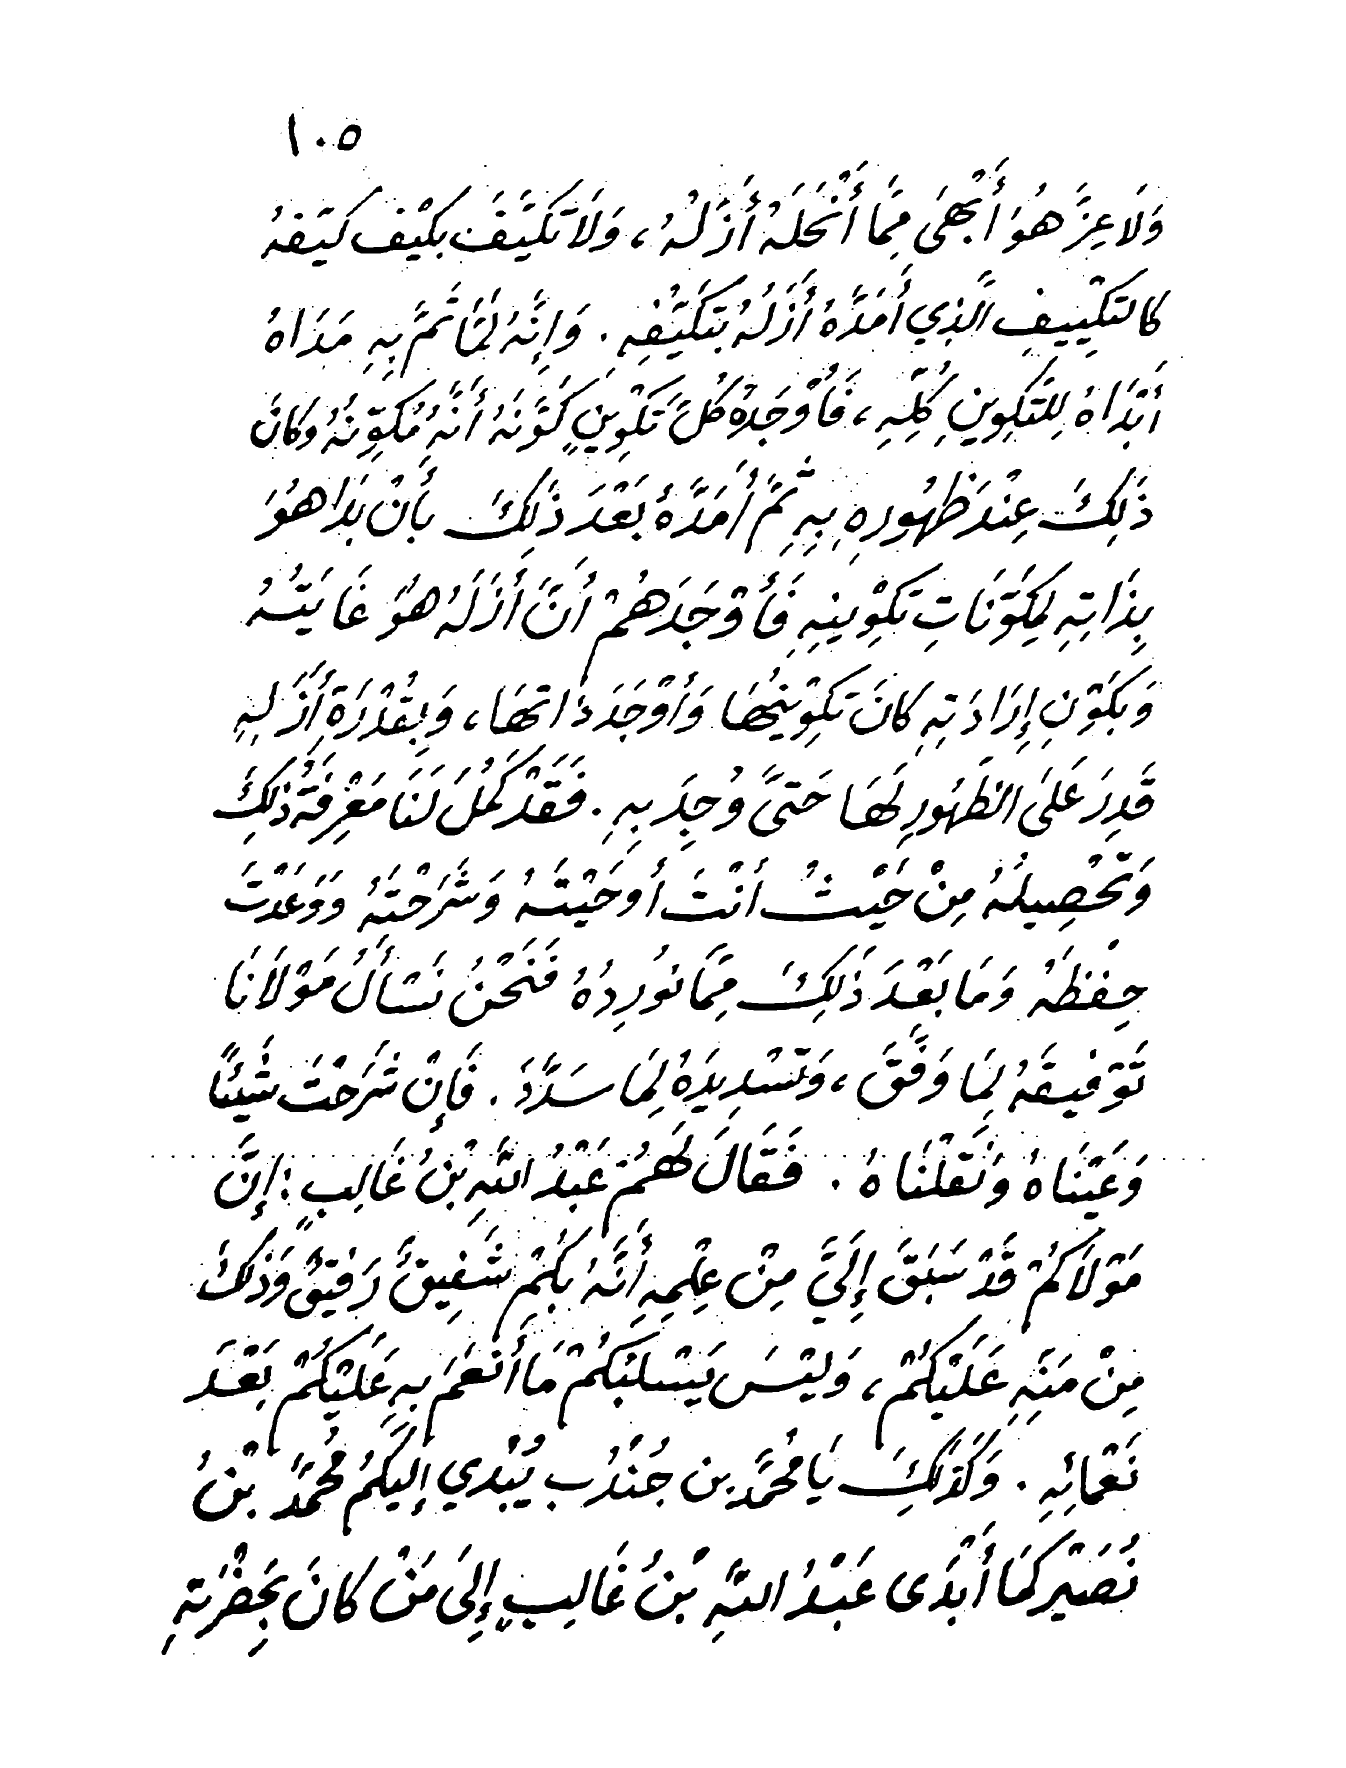 ١٠٥
وَلَا عِزَّ هُوَ أَبْهَى مِمَّا أَنْحَلَهُ أَزَلُهُ ، وَلَا تَكَيَّفَ بِكَيْفِ كَيَّفَهُ
كالتَكْيِيفِ الَّذِي أَمَدَّهُ أَزَلَهُ بِتَكَيُّفِهِ . وَإِنَّهُ لَمَّا تَمَّ بِهِ مَدَاهُ
أَبْدَاهُ لِلتَّكوِينِ كُلِّهِ ، فَأَوْجَدَهُ كُلَّ تَكْوِينٍ كَوَّنَهُ أَنَّهُ مُكَوِّنُهُ وَكَانَ
ذَلِكَ عِنْدَ ظُهُورِهِ بِهِ ثُمَّ أَمَدَّهُ بَعْدَ ذَلِكَ بِأَنْ بَدَا هُوَ
بِذَاتِهِ لِمُكَوَّنَاتِ تَكْوِينِهِ فَأَوْجَدَهُمْ أَنَّ أَزَلَهُ هُوَ غَايَتُهُ
وَبِكَوْنِ إِرَادَتِهِ كَانَ تَكْوِينُهَا وَأَوْجَدَ ذَاتَهَا ، وَبِقُدْرَةِ أَزَلِهِ
قَدِرَ عَلَى الظُهُورِ لَهَا حَتَّى وُجِدَ بِهِ . فَقَدْ كَمُلَ لَنَا مَعْرِفَةُ ذَلِكَ
وَتَحْصِيلُهُ مِنْ حَيْثُ أَنْتَ أَوحَيْتَهُ وَشَرَحْتَهُ وَوَعَدْتَ
حِفْظَهُ وَمَا بَعْدَ ذَلِكَ مِمَّا نُورِدُهُ فَنَحْنُ نَسْأَلُ مَوْلَانَا
تَوْفِيقَهُ لِمَا وَفَّقَ ، وَتَسْدِيدَهُ لِمَا سَدَّدَ . فَإِنْ شَرَحْتَ شَيْئًا
وَعَيْنَاهُ وَنَقَلْنَاهُ . فَقَالَ لَهُمْ عَبْدُ اللَّهِ بْنُ غَالِبٍ : إِنَّ
مَوْلَاكُمْ قَدْ سَبَقَ إِلَيَّ مِنْ عِلْمِهِ أَنَّهُ بِكُمْ شَفِيقٌ رَفِيقٌ وَذَلِكَ
مِنْ مَنِّهِ عَلَيْكُمْ ، وَلَيْسَ يَسْلُبُكُمْ مَا أَنْعَمَ بِهِ عَلَيْكُمْ بَعْدَ
نَعْمَائِهِ . وَكَذَلِكَ يَا مُحَمَّدَ بن جُنْدُبِ يُبْدِي إِلَيكُمُ مُحَمَّدُ بْنُ
نُصَيْرٍ كَمَا أَبْدَى عَبْدُ اللَّهِ بْنُ غَالِبٍ إِلَى مَنْ كَانَ بِحَضْرَتِهِ